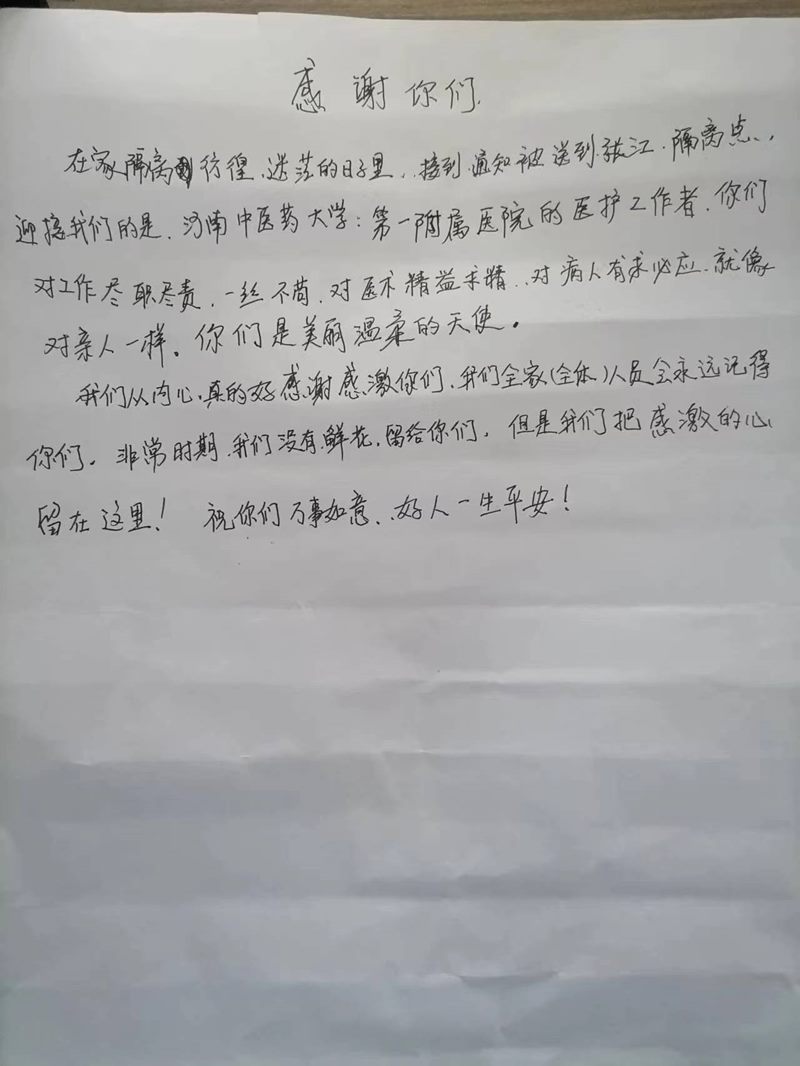 感谢你们.
在家隔离彷徨.迷茫的日子里,.接到通知被送到张江.隔离点.,
迎接我们的是.河南中医药大学:第一附属医院的医护工作者.你们
对工作尽职尽责.一丝不苟.对医术精益求精..对病人有求必应.就像
对亲人一样。你们是美丽温柔的天使。
我们从内心.真的好感谢感激你们.我们全家(全体)人员会永远记得
你们。非常时期.我们没有鲜花.留给你们.但是我们把感激的心
留在这里!祝你们万事如意..好人一生平安!